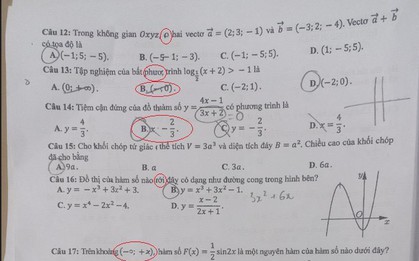 Câu 12: Trong không gian Oxyz, o hai vectơ a = (2; 3; −1) và b = (−3; 2; −4). Vectơ a + b
có tọa độ là
A. (−1; 5; −5). B. (−5−1; −3). C. (−1; −5; 5). D. (1; −5; 5).
Câu 13: Tập nghiệm của bất phươ trình log (x + 2) > −1 là
B. (−; 0). C. (−2; 1). D. (−2; 0).
Câu 14: Tiệm cận đứng của đồ thị hàm số y = (4x − 1)/(3x + 2) có phương trình là
A. y = 4/3. B. x − 2/3. C. y = −2/3. D. x = 4/3.
Câu 15: Cho khối chóp tứ giác có thể tích V = 3a³ và diện tích đáy B = a². Chiều cao của khối chóp
đã cho bằng
A. 9a. B. a C. 3a. D. 6a.
Câu 16: Đồ thị của hàm số nào dưới đây có dạng như đường cong trong hình bên?
A. y = −x³ + 3x² + 3. B. y = x³ + 3x² − 1. 3x² + 6x
C. y = x⁴ − 2x² − 4. D. y = (x − 2)/(2x + 1).
y
O
x
Câu 17: Trên khoảng (−∞; +∞), hàm số F(x) = 1/2 sin2x là một nguyên hàm của hàm số nào dưới đây?